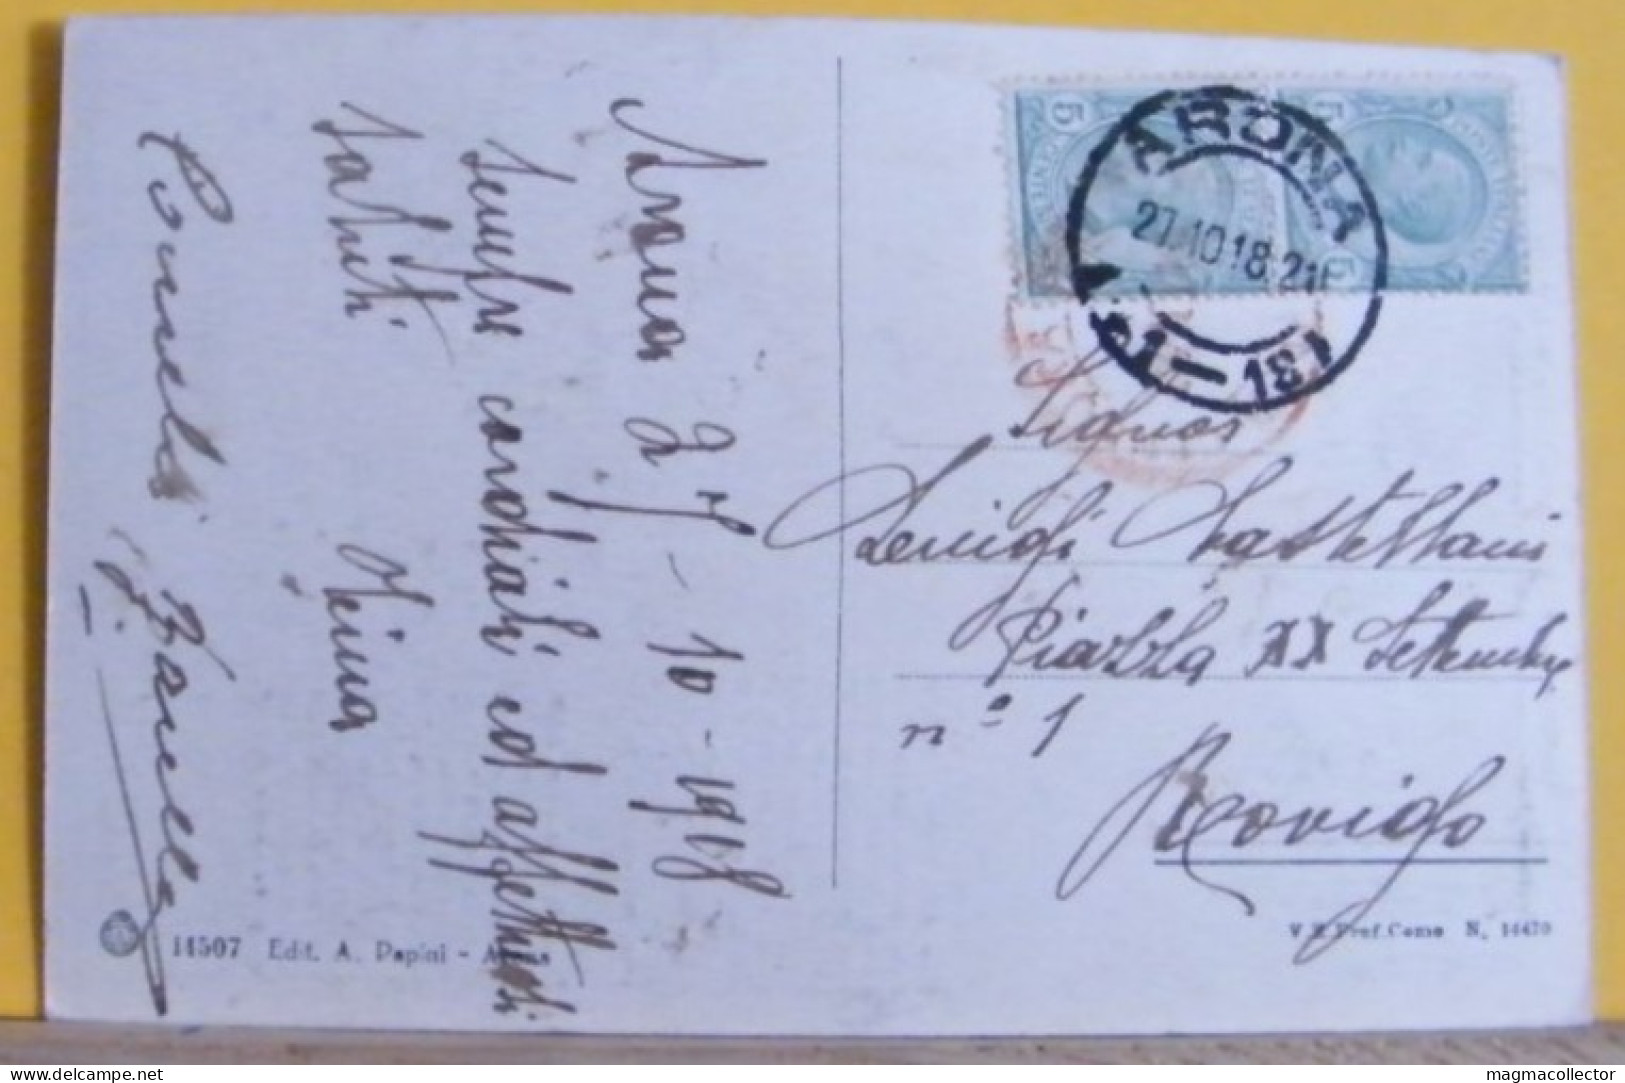 Arona 27-10-1918
Sempre cordiali ed affettuosi
saluti Neina
ARONA
27.10 18.21
Signor
Luigi Castellani
Piazza XX Settembre
n° 1
Rovigo
14507 Edit. A. Papini - Arona
V. R. Pref. Como N. 14470
5
5
5
delcampe.net
magmacollector